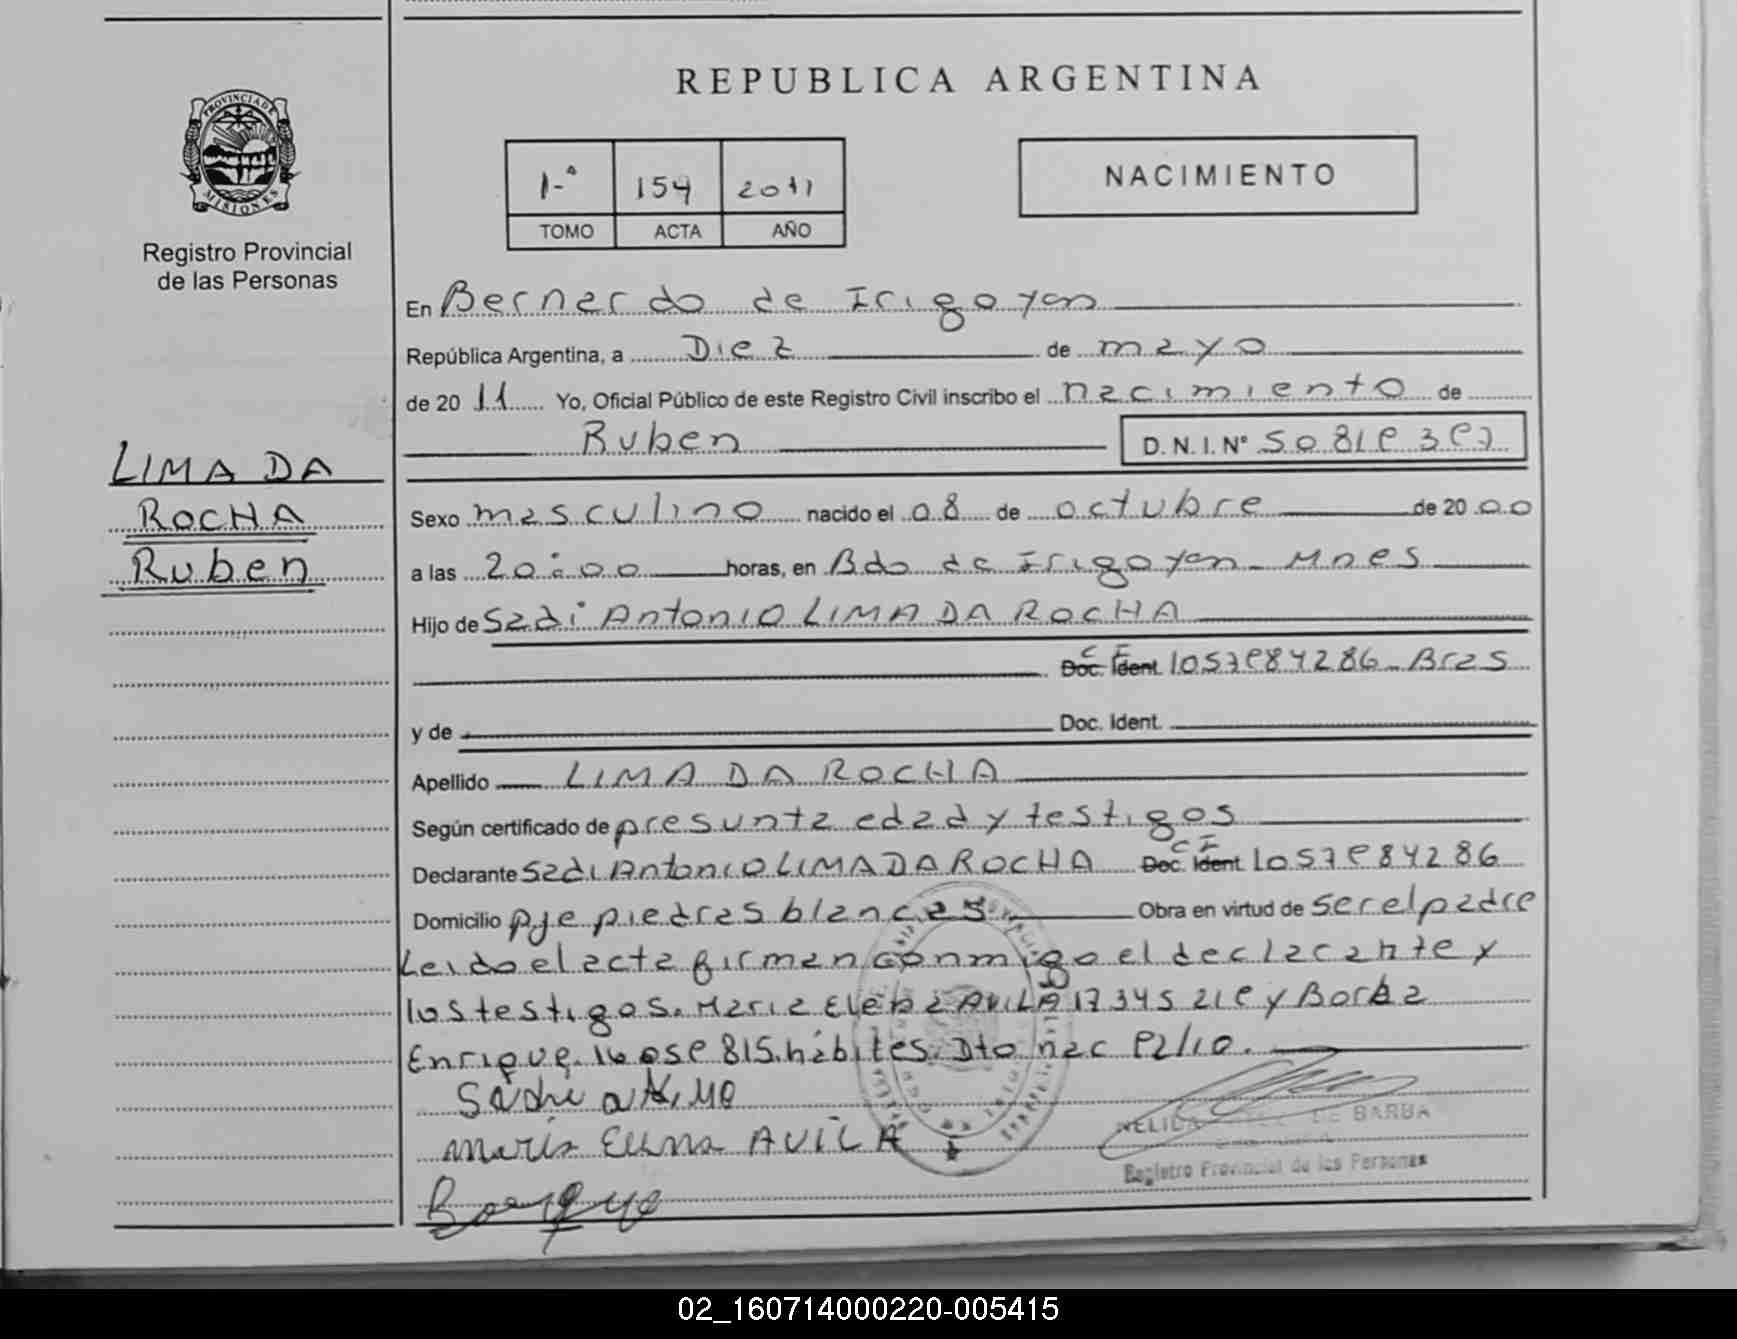 REPUBLICA ARGENTINA
PROVINCIA DE MISIONES
1-ª 154 2011
TOMO ACTA AÑO
NACIMIENTO
Registro Provincial
de las Personas
En Bernardo de Irigoyen
República Argentina, a Diez de mayo
de 2011 Yo, Oficial Público de este Registro Civil inscribo el nacimiento de
Ruben D. N. I. Nº
LIMA DA
ROCHA
Ruben
Sexo masculino nacido el 08 de octubre de 2000
a las 20:00 horas, en Bdo de Irigoyen - Mnes
Hijo de Sadi Antonio LIMA DA ROCHA
C I
Doc. Ident. Bras
y de Doc. Ident.
Apellido LIMA DA ROCHA
Según certificado de presunta edad y testigos
C I
Declarante Sadi Antonio LIMA DA ROCHA Doc. Ident.
Domicilio pje piedras blancas Obra en virtud de ser el padre
Leido el acta firman conmigo el declarante y
los testigos. Maria Elena AVILA y Borba
Enrique. habites. Dto nac
Maria Elena AVILA
NELIDA DE BARBA
Registro Provincial de las Personas
02_160714000220-005415